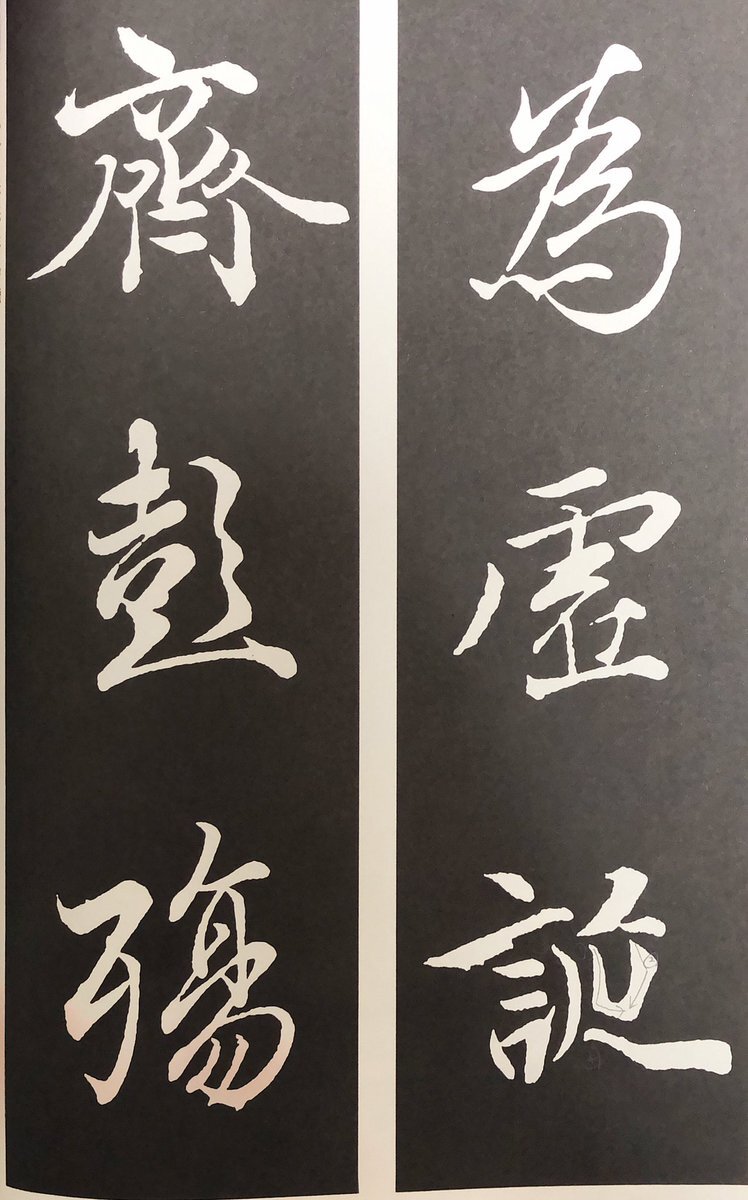 為虛誕
齊彭殤